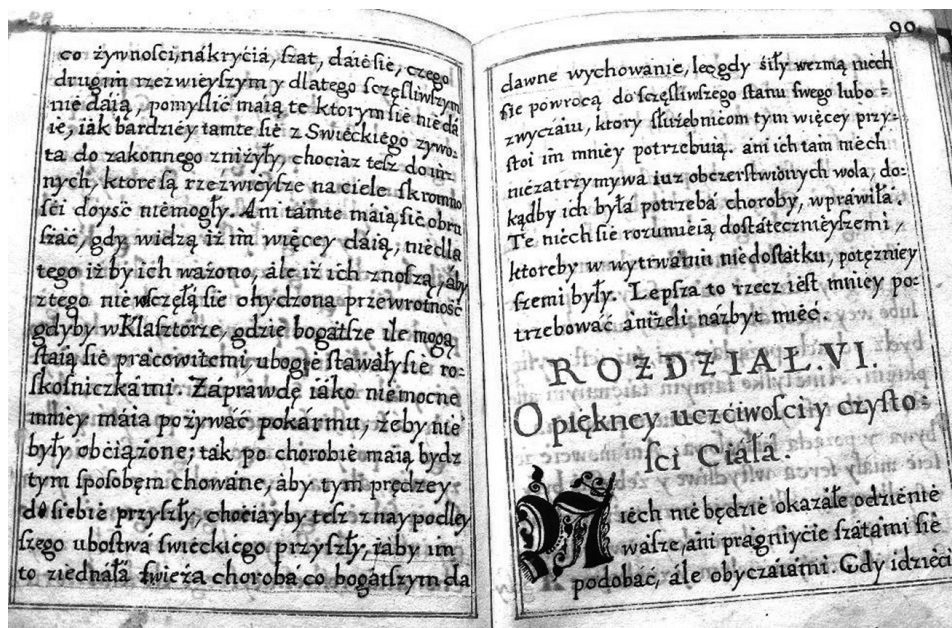 co żywności, nákryćiá, ſzat, dáiéśie, czego
drugim rzezwieyſzym y dlatego ſczęśliwſzym
nie dáią, pomyślić máią te ktorym śię nie dá
ie, iák bárdziéy tamte śię z Swieckiégo żywo=
ta do zakonnego zniżyły, choćiaz teſz do in=
nych, ktore ſą rzeźwieyſze na ciele ſkromno
śći doyść niémogły. Ani támte máią śię obru
ſzáć, gdy widzą iż im więcey dáią, niédla
tego iż by ich ważono, ále iż ich znoſzą, áby
ztego niewſczęłá śię ohydzona przewrotność
gdyby w Klaſztorze, gdzie bogátſze ile mogą,
ſtáią śię prácowitemi, ubogie ſtawáły śię ro=
ſkoſniczkámi. Záprawdę iáko niémocne
mniey máia pożywáć pokármu, żeby nie
były obciążone; ták po chorobie máią bydz
tym ſpoſobęm chowáne, áby tym prędzey
do siebie przyſzły, choćiayby teſz z naypodley
ſzego uboſtwá świeckiégo przyſzły, iáby im
to ziednáłá świeża choroba co bogátſzym da
90.
dawne wychowanie, lec gdy śiły wezmą niech
śię powrocą do ſczęśliwſzego ſtanu ſwego lubo=
zwyczáiu, ktory ſłużebnicom tym więcey przy=
ſtoi im mniey potrzebuią. ani ich tam niech
niézatrzymywa iuz obczerſtwionych wola, do=
kądby ich byłá potrzebá choroby, wpráwiłá.
Te niech śię rozumieią doſtáteczniéyſzemi,
ktoreby w wytrwaniu niedoſtátku, potężniey
ſzemi były. Lepſza to rzecz ieſt mniey po=
trzebowáć ániżeli názbyt miéć.
ROZDZIAŁ. VI.
O piękney uczćiwośći y czyſto=
śći Ciáłá.
Niech nie będzie okazáłe odzienie
wáſze, áni prágniyćie ſzátámi śię
podobáć, ále obyczáiámi. Gdy idzieci